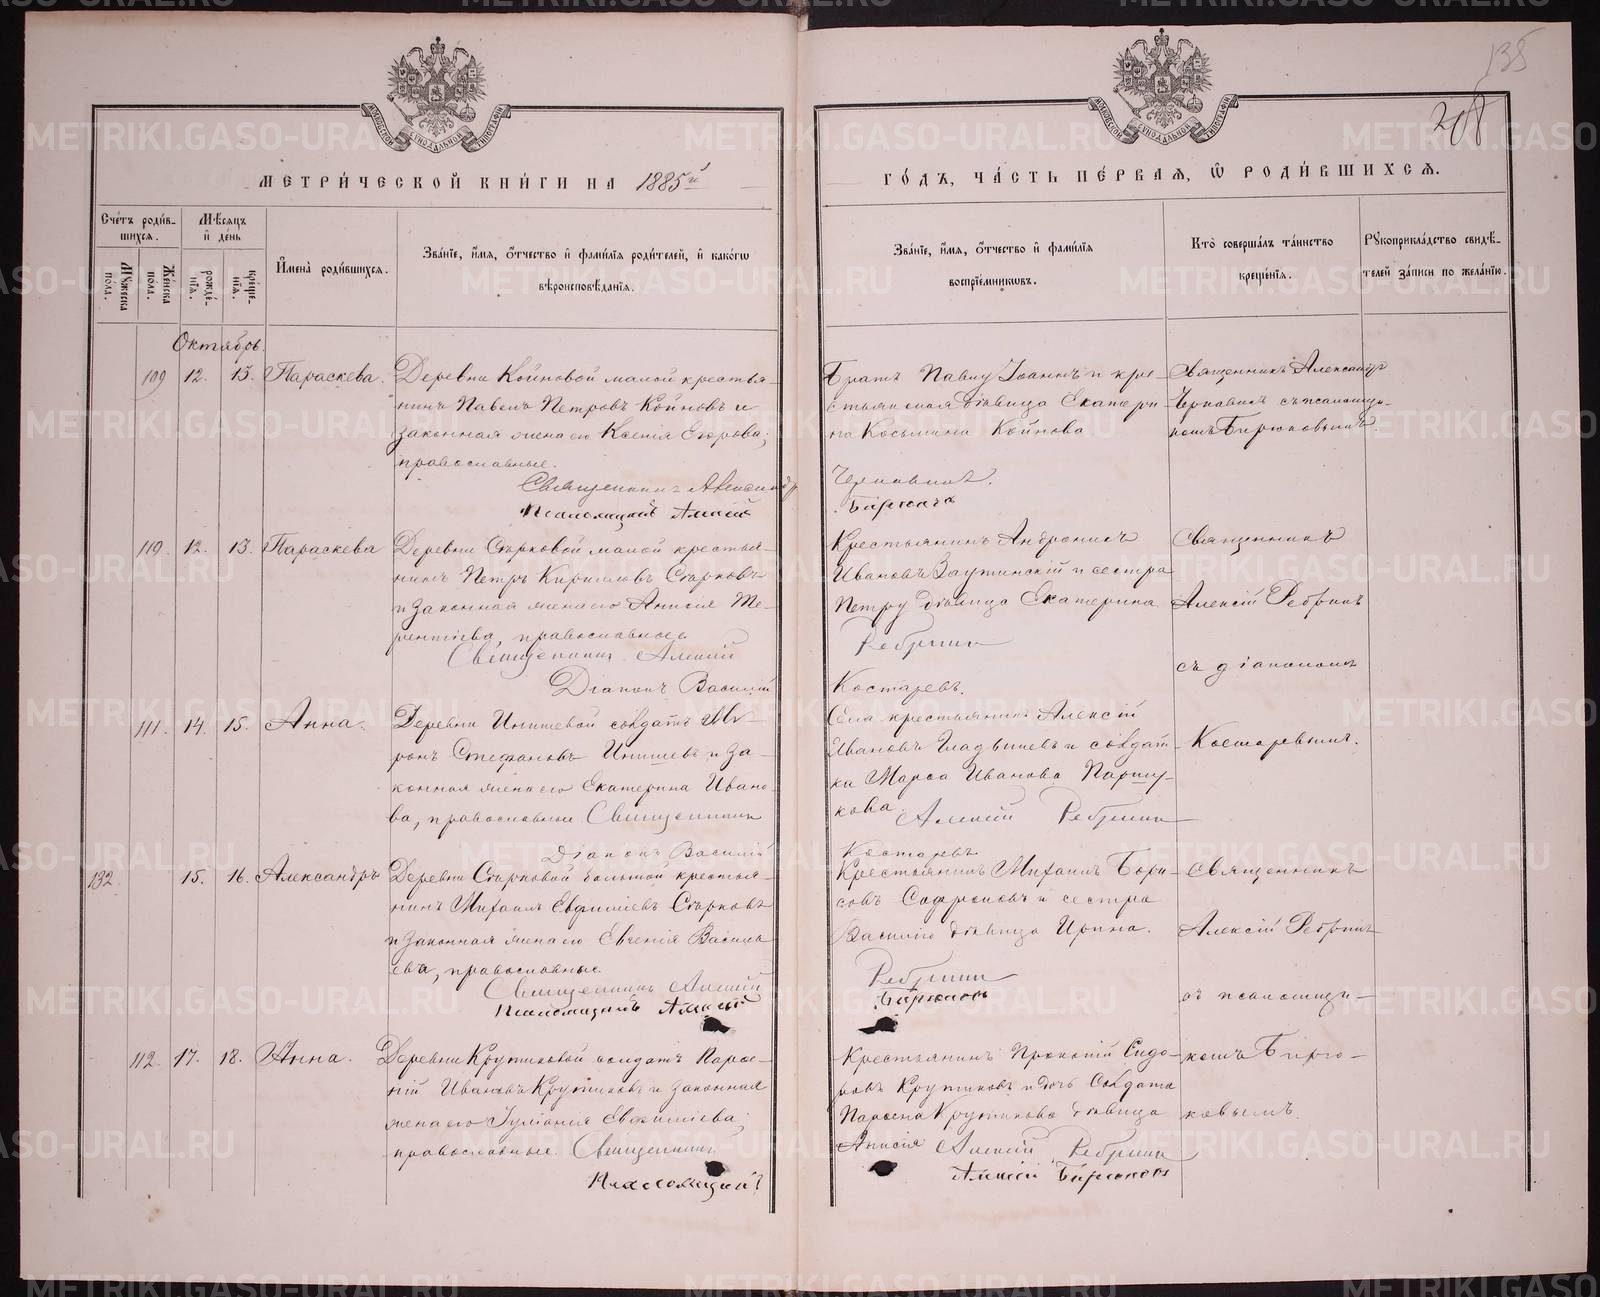 135
208
МЕТРИ́ЧЕСКОЙ КНИ́ГИ НА 1885й
ГО́ДЪ, ЧА́СТЬ ПЕ́РВАЯ, Ѿ РОДИ́ВШИХСѦ.
Сче́тъ роди́в-
шихся.
Мѣ́сяцъ
и̑ де́нь
Мꙋ́жеска по́ла.
Же́нска по́ла.
рожде́-нїѧ.
креще́-нїѧ.
И҆мена̀ роди́вшихся.
Зва́нїе, и҆́мѧ, ѻ҆́тчество и҆ фами́лїѧ роди́телей, и҆ како́гѡ
вѣроисповѣ́данїѧ.
Зва́нїе, и҆́мѧ, ѻ҆́тчество и҆ фами́лїѧ
воспрїе́мникѡвъ.
Кто̀ соверша́лъ та́инство
креще́нїѧ.
Рꙋкоприкла́дство свидѣ́-
телей за́писи по жела́нїю.
Октябрь.
109 12. 13. Параскева.
Деревни Койновой малой крестья-
нинъ Павелъ Петровъ Койновъ и
законная жена его Ксенія Егорова,
православные.
Священникъ Александръ
Псаломщикъ Алексѣй
Братъ Павлу Іоаннъ и кре-
стьянская дѣвица Екатери-
на Косьмина Койнова
Чернавинъ.
Бирюковъ
Священникъ Александръ
Чернавинъ съ псаломщи-
комъ Бирюковымъ.
110. 12. 13. Параскева
Деревни Старковой малой крестья-
нинъ Петръ Кирилловъ Старковъ
и законная жена его Анисія Те-
рентіева, православные
Священникъ Алексій
Діаконъ Василій
Крестьянинъ Андроникъ
Ивановъ Заутинскій и сестра
Петру дѣвица Екатерина
Ребринъ
Костаревъ.
Священникъ
Алексій Ребринъ
съ діакономъ
Костаревымъ.
111. 14. 15. Анна.
Деревни Инишевой солдатъ Ми-
ронъ Стефановъ Инишевъ и за-
конная жена его Екатерина Ивано-
ва, православные. Священникъ
Діаконъ Василій
Села крестьянинъ Алексій
Ивановъ Гладышевъ и солдат-
ка Марѳа Иванова Паршу-
кова. Алексій Ребринъ
Костаревъ
132. 15. 16. Александръ
Деревни Старковой большой крестья-
нинъ Михаилъ Евфиміевъ Старковъ
и законная жена его Евгенія Василь-
ева, православные
Священникъ Алексій
Псаломщикъ Алексѣй
Крестьянинъ Михаилъ Бори-
совъ Софроновъ и сестра
Василію дѣвица Ирина.
Ребринъ
Бирюковъ
Священникъ
Алексій Ребринъ
съ псаломщи-
комъ Бирю-
ковымъ.
112. 17. 18. Анна.
Деревни Крутиковой солдатъ Парѳе-
ній Ивановъ Крутиковъ и законная
жена его Іуліанія Евфиміева,
православные. Священникъ
Псаломщикъ
Крестьянинъ Прокопій Сидо-
ровъ Крутиковъ и дочь солдата
Парѳена Крутикова дѣвица
Анисія Алексій Ребринъ
Алексій Бирюковъ
METRIKI.GASO-URAL.RU